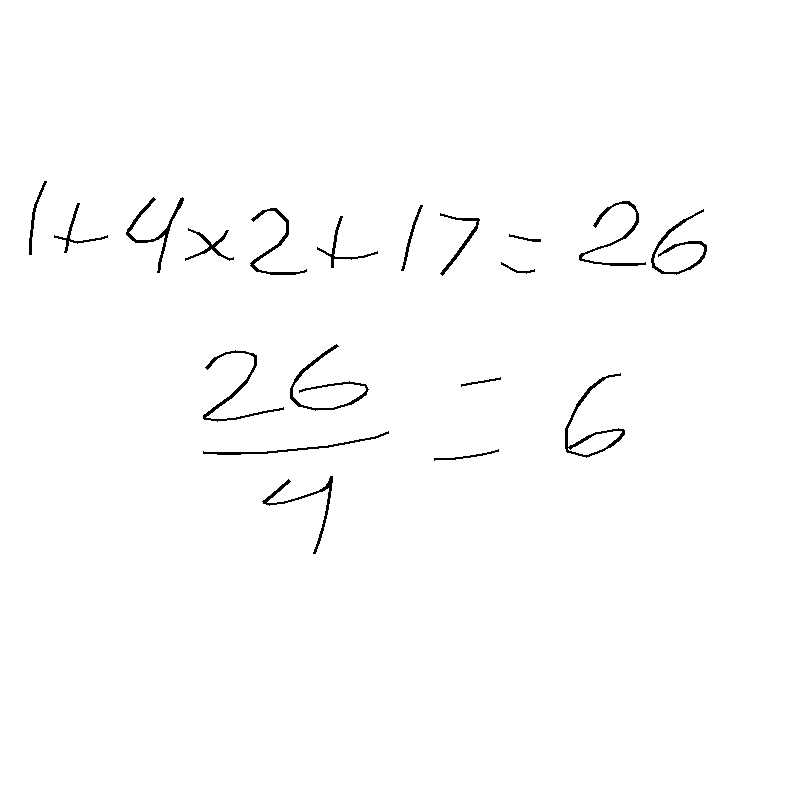 1+4×2+17=26
26/4 = 6